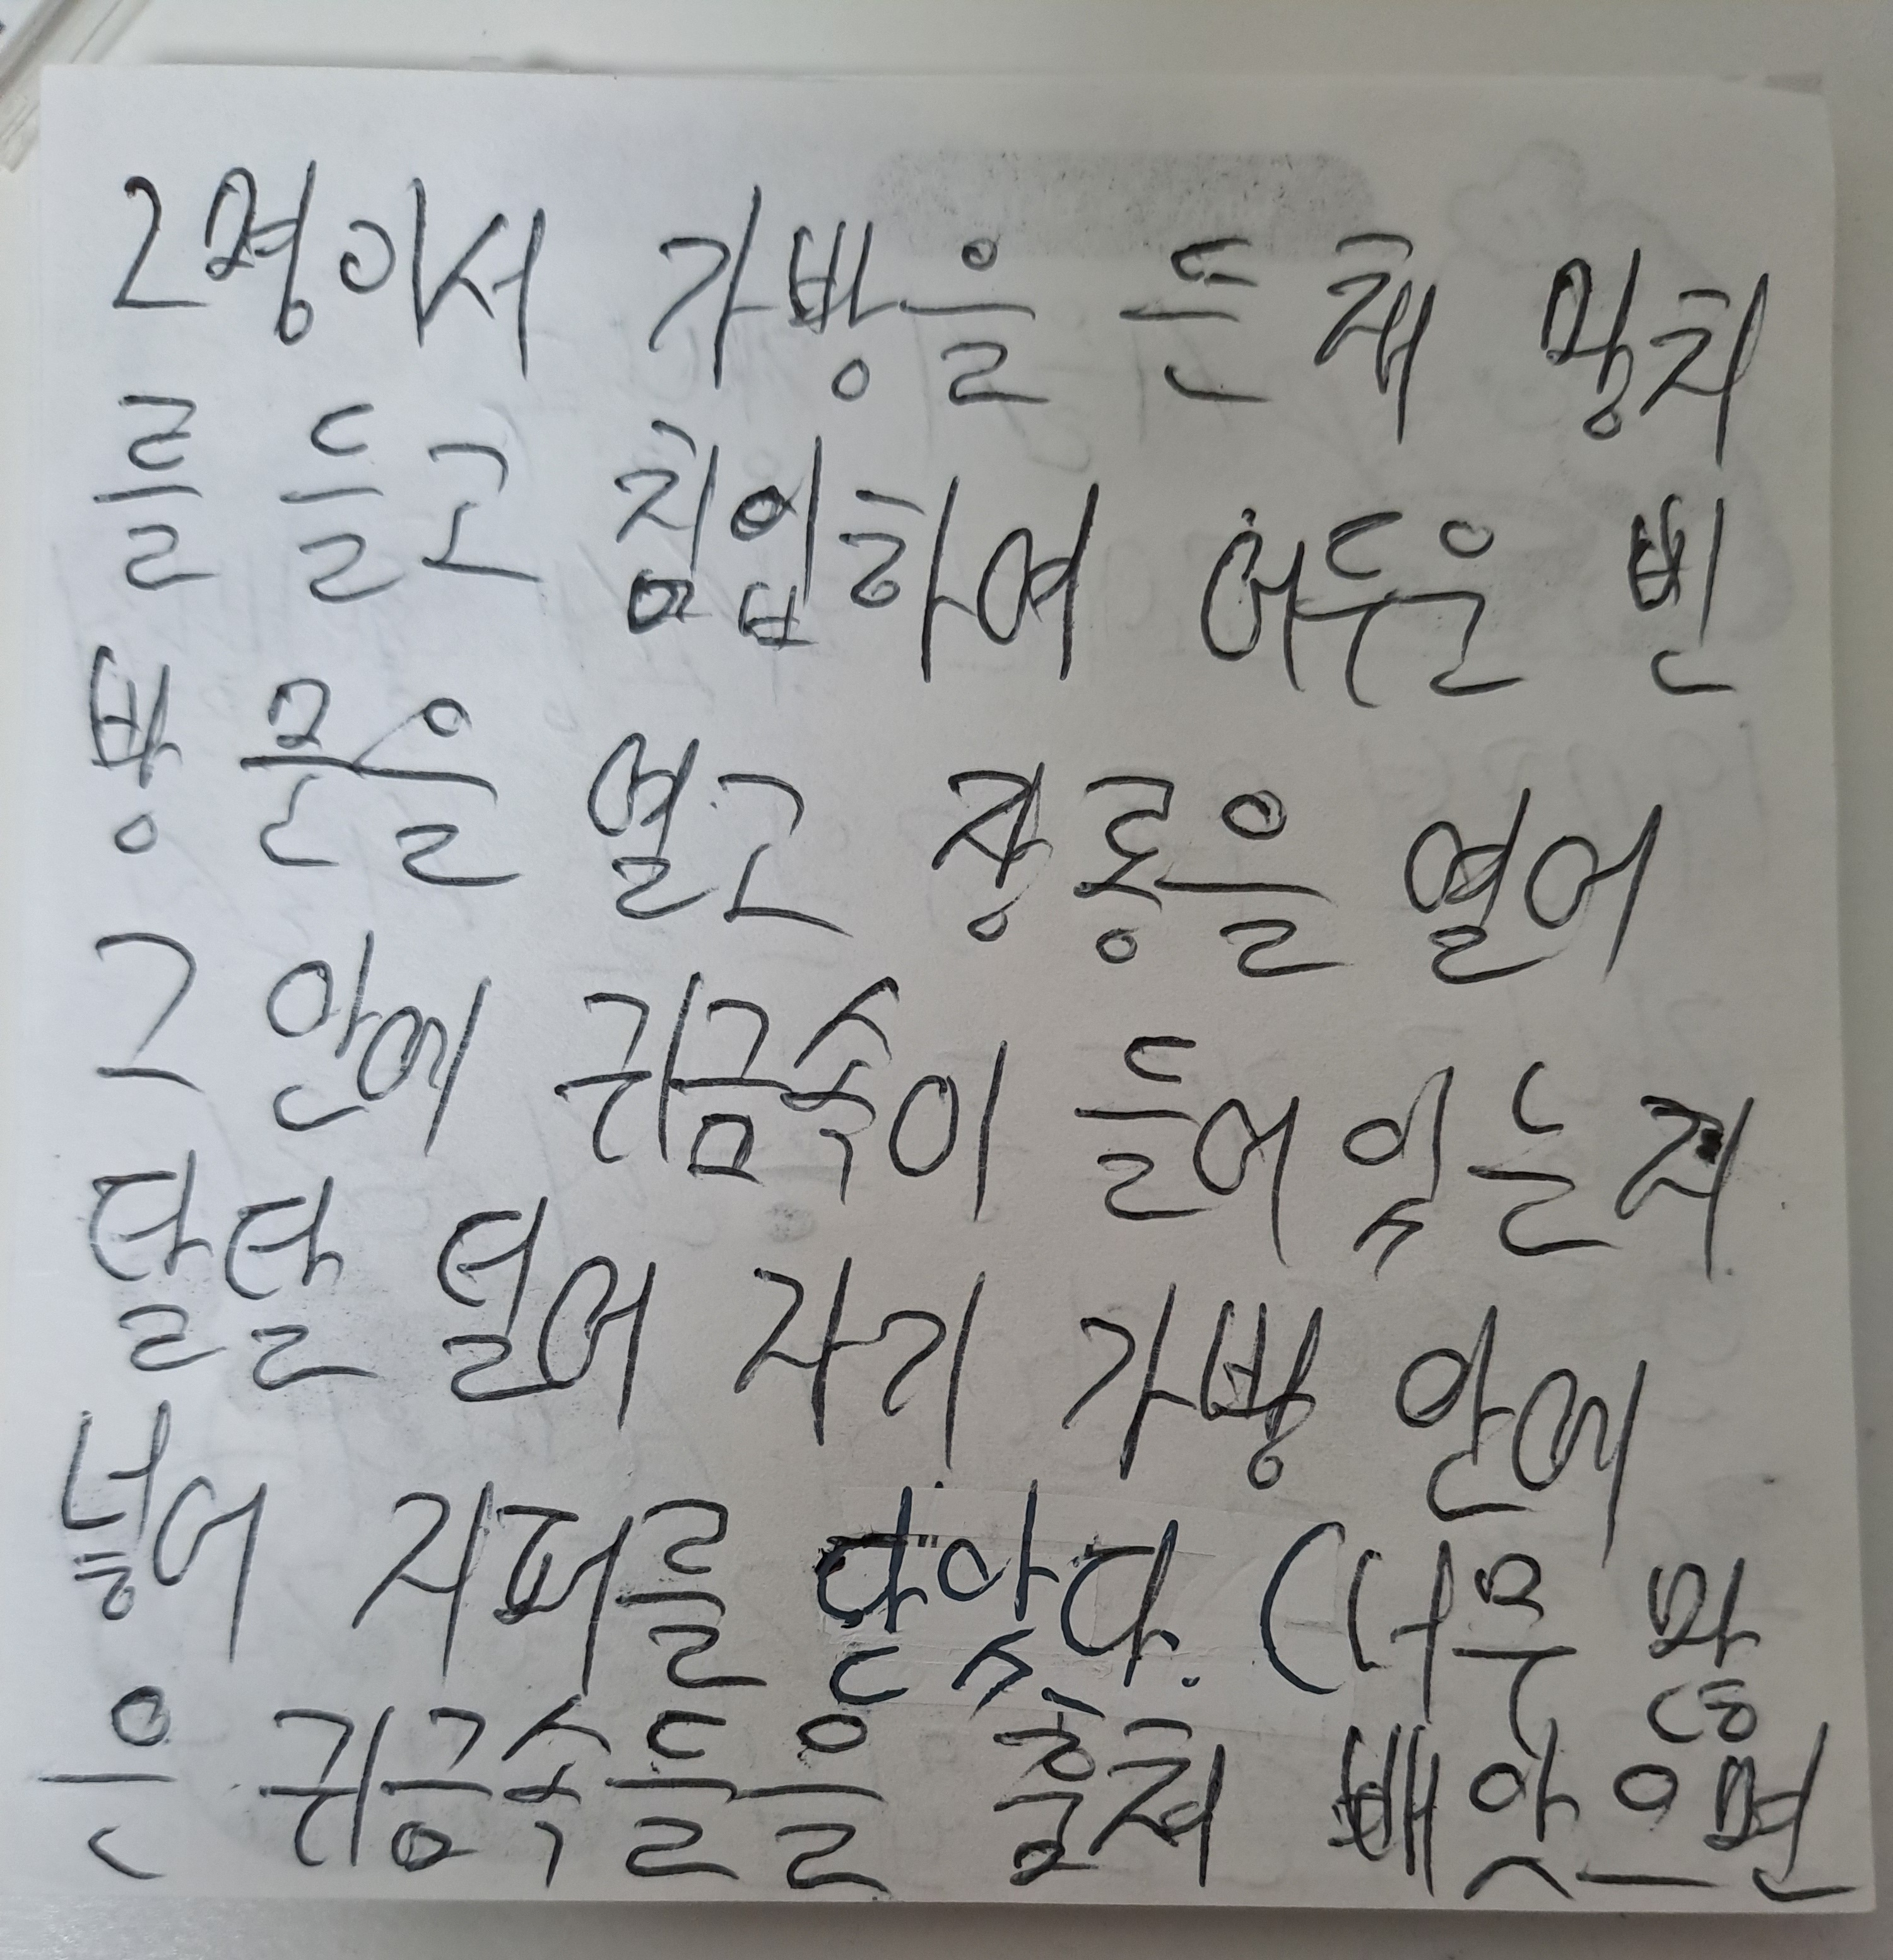 2명이서 가방을 든채 망치
를 들고 침입하여 어두운 빈
방 문을 열고 장롱을 열어
그 안에 귀금속이 들어있는지
탈탈 털어 자기 가방 안에
넣어 지퍼를 닫앗다. (너무 많
은 귀금속들을 훔쳐 빼앗으면